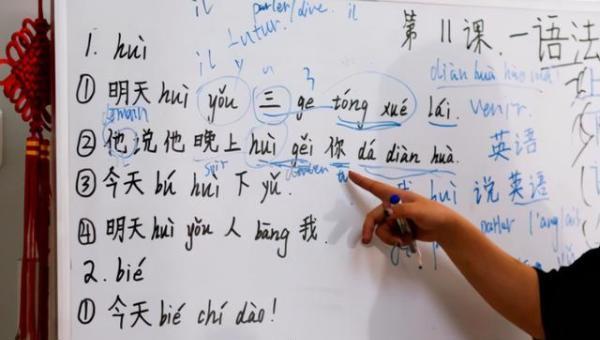 il parler/dire. il
futur.
第11课.-语法
1. huì
diàn huà hào mǎ
① 明天 huì yǒu 三 ge tóng xué lái. venir.
② 他说他晚上 huì gěi 你 dá diàn huà. 英语
soir
③ 今天 bú huì 下 yǔ. huì 说英语
parler l'anglais
④ 明天 huì yǒu 人 bāng 我.
2. bié
① 今天 bié chí dào!